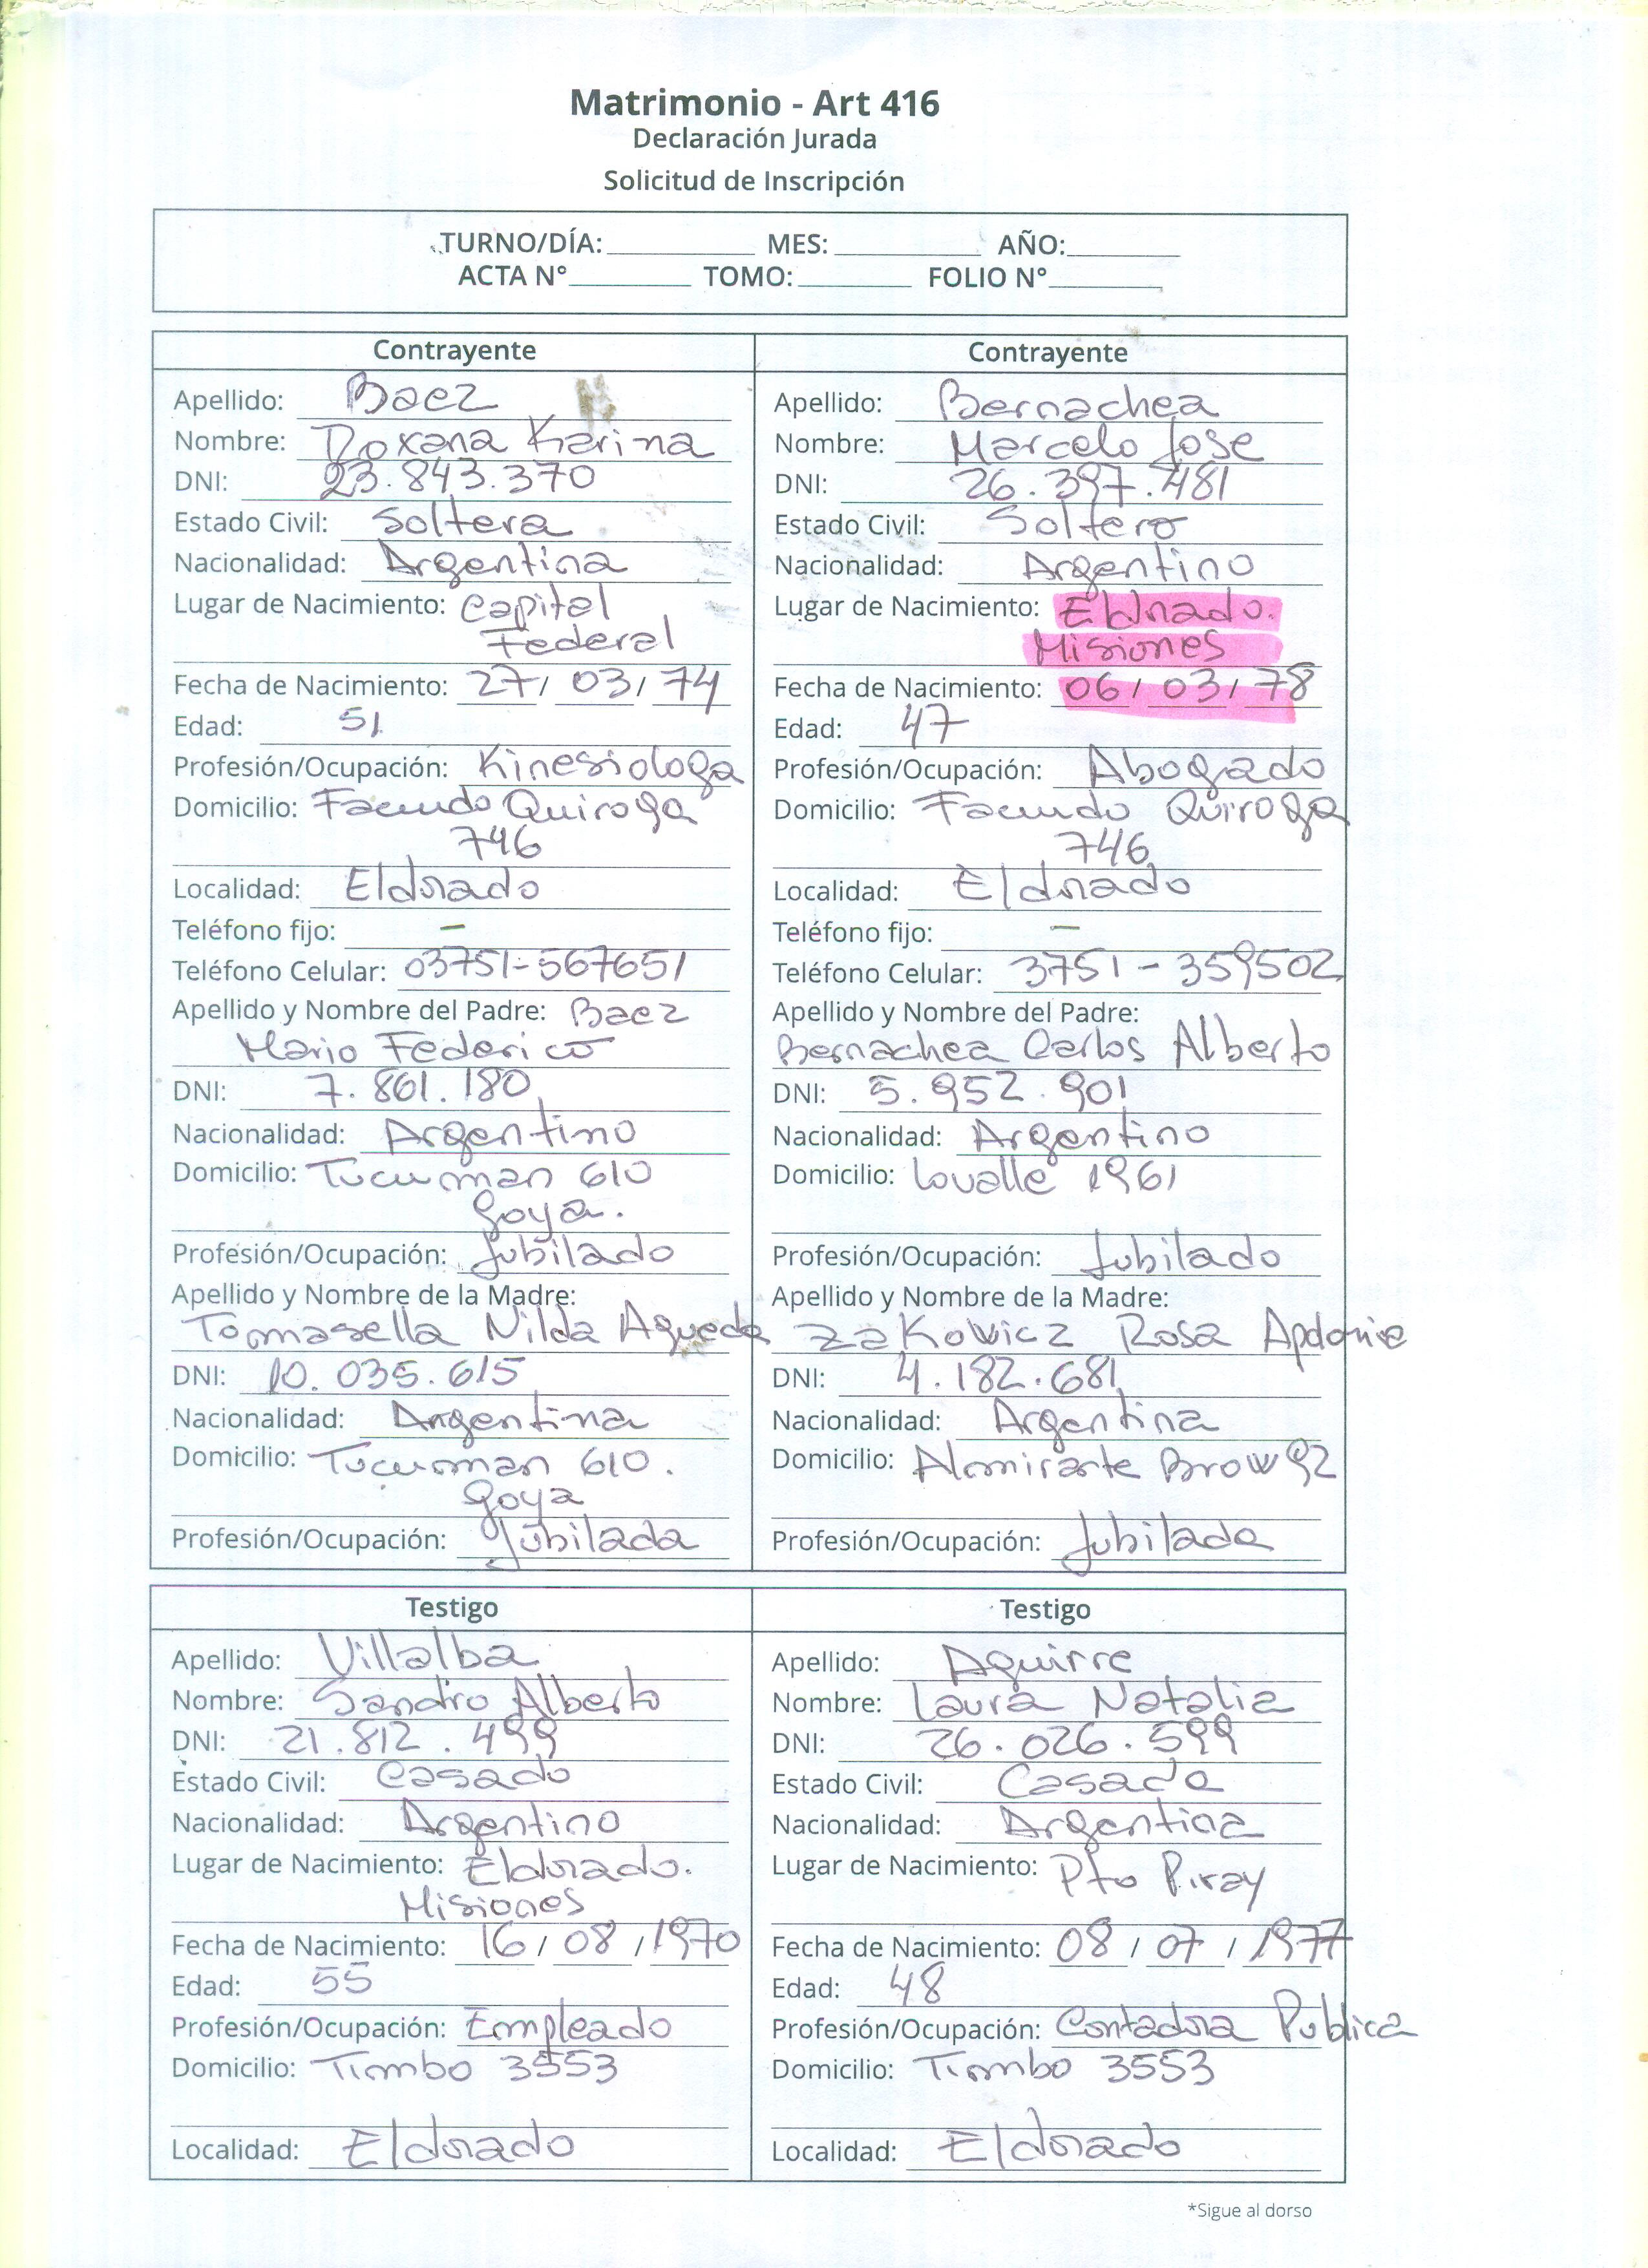 Matrimonio - Art 416
Declaración Jurada
Solicitud de Inscripción
TURNO/DÍA: MES: AÑO:
ACTA N° TOMO: FOLIO N°
Contrayente
Apellido: Baez
Nombre: Roxana Karina
DNI: 23.843.370
Estado Civil: Soltera
Nacionalidad: Argentina
Lugar de Nacimiento: Capital
Federal
Fecha de Nacimiento: 27/ 03/ 74
Edad: 51
Profesión/Ocupación: Kinesiologa
Domicilio: Facundo Quiroga
746
Localidad: Eldorado
Teléfono fijo: –
Teléfono Celular: 03751-567651
Apellido y Nombre del Padre: Baez
Mario Federico
DNI: 7.861.180
Nacionalidad: Argentino
Domicilio: Tucuman 610
Goya.
Profesión/Ocupación: Jubilado
Apellido y Nombre de la Madre:
Tomasella Nilda Agueda
DNI: 10.035.615
Nacionalidad: Argentina
Domicilio: Tucuman 610.
Goya
Profesión/Ocupación: Jubilada
Contrayente
Apellido: Bernachea
Nombre: Marcelo Jose
DNI: 26.397.481
Estado Civil: Soltero
Nacionalidad: Argentino
Lugar de Nacimiento: Eldorado.
Misiones
Fecha de Nacimiento: 06/ 03/ 78
Edad: 47
Profesión/Ocupación: Abogado
Domicilio: Facundo Quiroga
746
Localidad: Eldorado
Teléfono fijo: –
Teléfono Celular: 3751-359502
Apellido y Nombre del Padre:
Bernachea Carlos Alberto
DNI: 5.952.901
Nacionalidad: Argentino
Domicilio: Lavalle 1961
Profesión/Ocupación: Jubilado
Apellido y Nombre de la Madre:
Zakowicz Rosa
DNI: 4.182.681
Nacionalidad: Argentina
Domicilio: Almirante Brow 92
Profesión/Ocupación: Jubilada
Testigo
Apellido: Villalba
Nombre: Sandro Alberto
DNI: 21.812.499
Estado Civil: Casado
Nacionalidad: Argentino
Lugar de Nacimiento: Eldorado.
Misiones
Fecha de Nacimiento: 16/ 08/ 1970
Edad: 55
Profesión/Ocupación: Empleado
Domicilio: Timbo 3553
Localidad: Eldorado
Testigo
Apellido: Aguirre
Nombre: Laura Natalia
DNI: 26.026.599
Estado Civil: Casada
Nacionalidad: Argentina
Lugar de Nacimiento: Pto Piray
Fecha de Nacimiento: 08 / 07 / 1977
Edad: 48
Profesión/Ocupación: Contadora Publica
Domicilio: Timbo 3553
Localidad: Eldorado
*Sigue al dorso